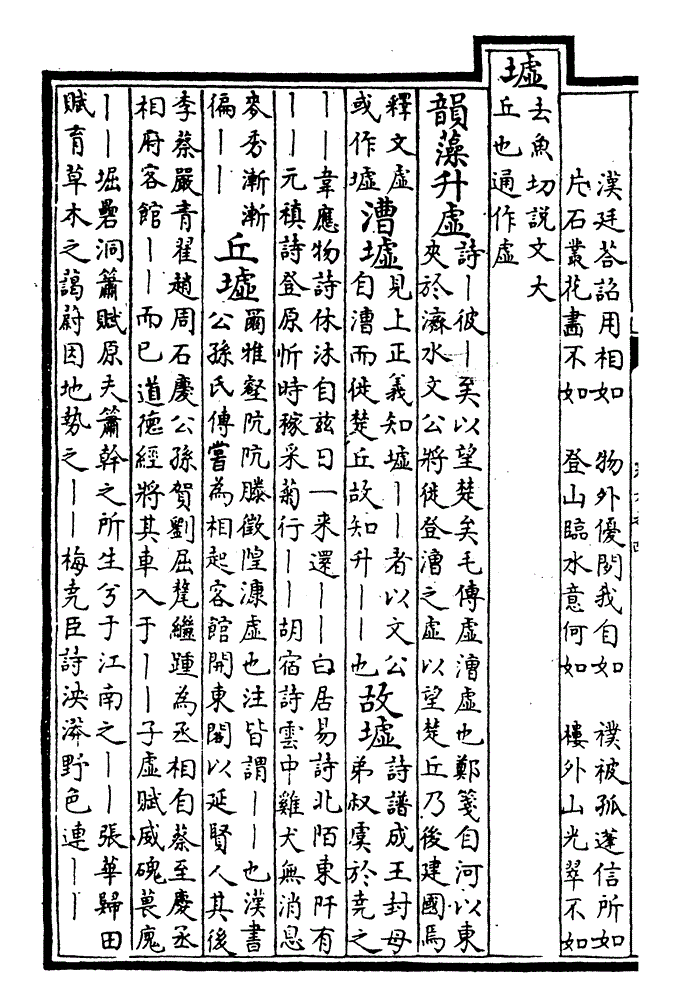 漢廷荅詔用相如　物外優閒我自如　襆被孤蓬信所如
片石叢花畫不如　登山臨水意何如　樓外山光翠不如
墟
去魚切說文大
丘也通作虛
韻藻升虛
詩｜彼｜矣以望楚矣毛傳虛漕虛也鄭箋自河以東
夾於濟水文公將徙登漕之虛以望楚丘乃後建國焉
釋文虛
或作墟
漕墟
見上正義知墟｜｜者以文公
自漕而徙楚丘故知升｜｜也
故墟
詩譜成王封母
弟叔虞於堯之
｜｜韋應物詩休沐自兹日一来還｜｜白居易詩北陌東阡有
｜｜元禛詩登原忻時稼采菊行｜｜胡宿詩雲中雞犬無消息
麥秀漸漸
偏｜｜
丘墟
爾雅壑阬阬滕徵隍漮虛也注皆謂｜｜也漢書
公孫氏傳嘗為相起客館開東閣以延賢人其後
李蔡嚴青翟趙周石慶公孫賀劉屈氂繼踵為丞相自蔡至慶丞
相府客館｜｜而已道德經將其車入于｜｜子虛賦威磈廆
｜｜堀礨洞簫賦原夫簫幹之所生兮于江南之｜｜張華歸田
賦育草木之藹蔚因地勢之｜｜梅堯臣詩泱漭野色連｜｜